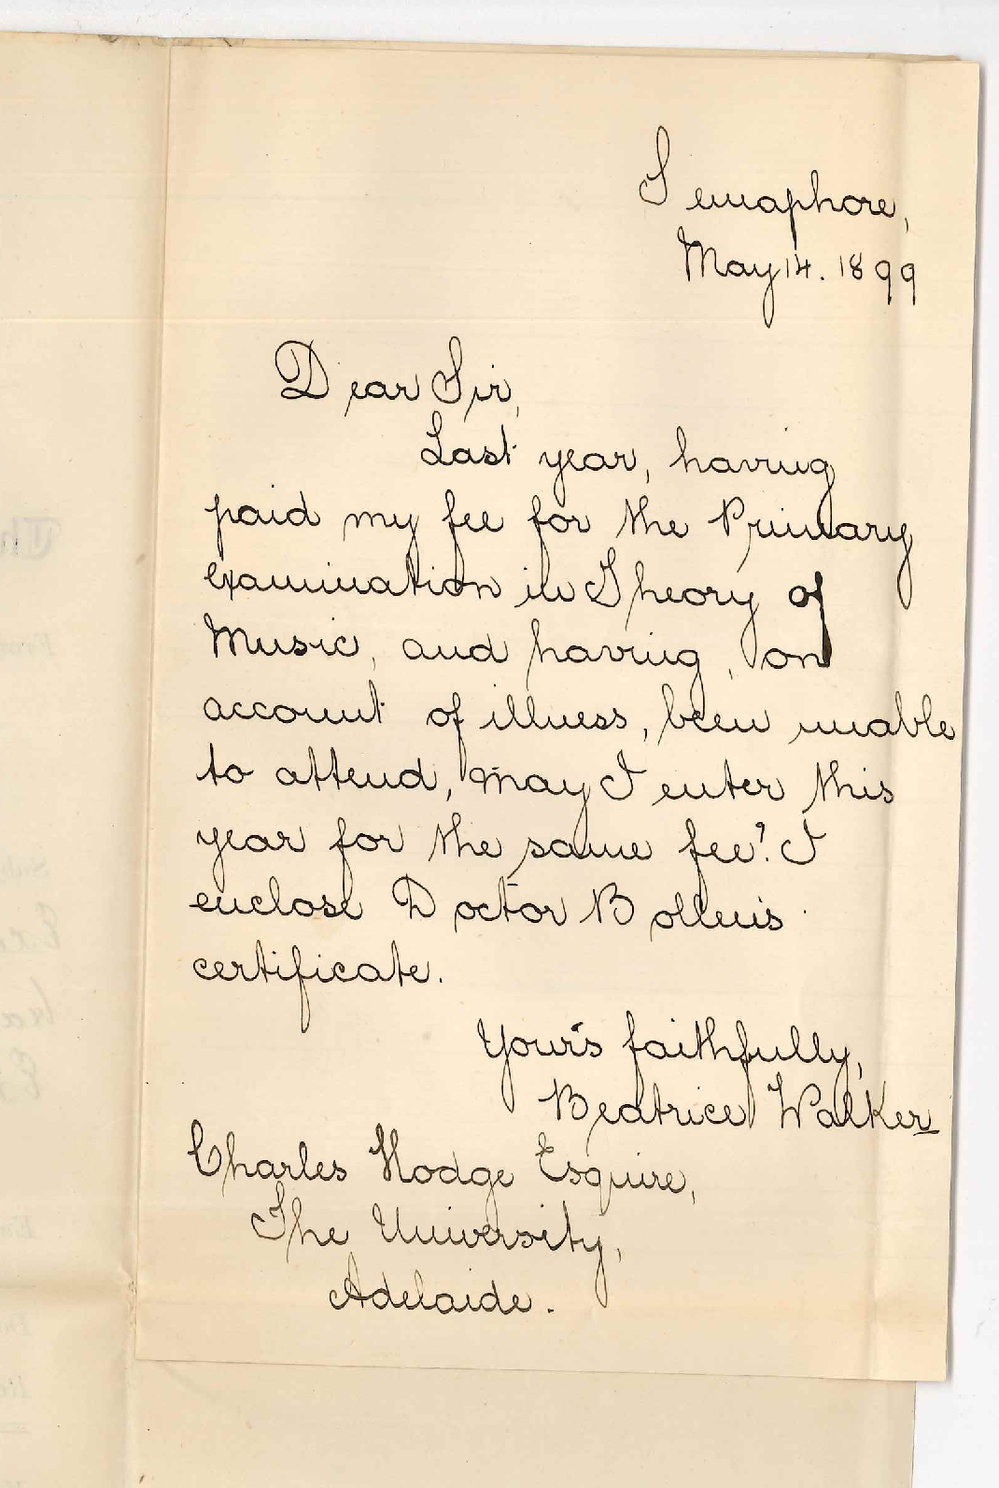 Semaphore,
May 14. 1899
Dear Sir,
Last year, having
paid my fee for the Primary
examination in Theory of
Music, and having, on
account of illness, been unable
to attend, may I enter this
year for the same fee? I
enclose Doctor Bollen's
certificate.
Your's faithfully,
Beatrice Walker
Charles Hodge Esquire,
The University,
Adelaide.